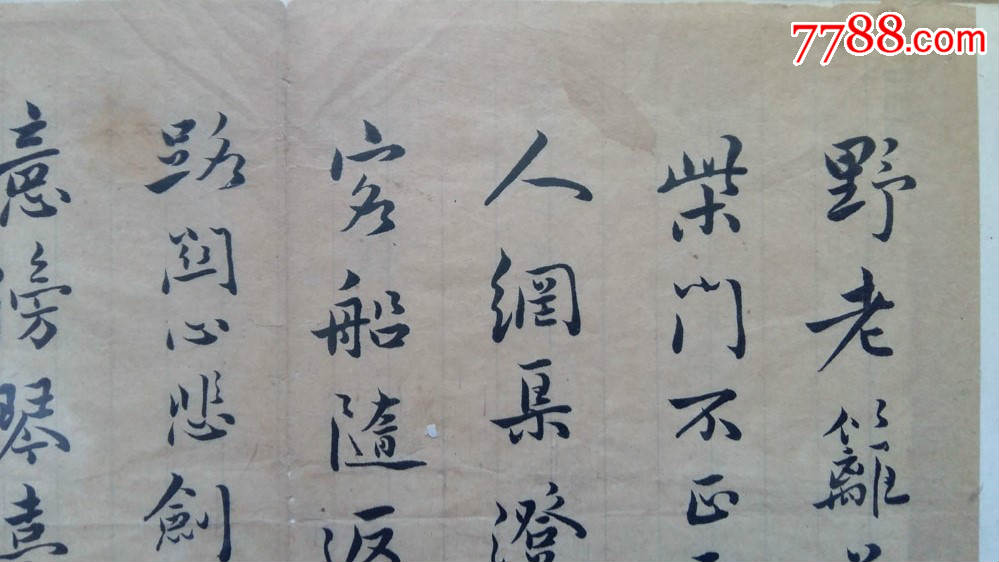 7788.com
野老籬
柴門不正
人網集澄
客船隨返
路關心悲劍
意傍琴臺